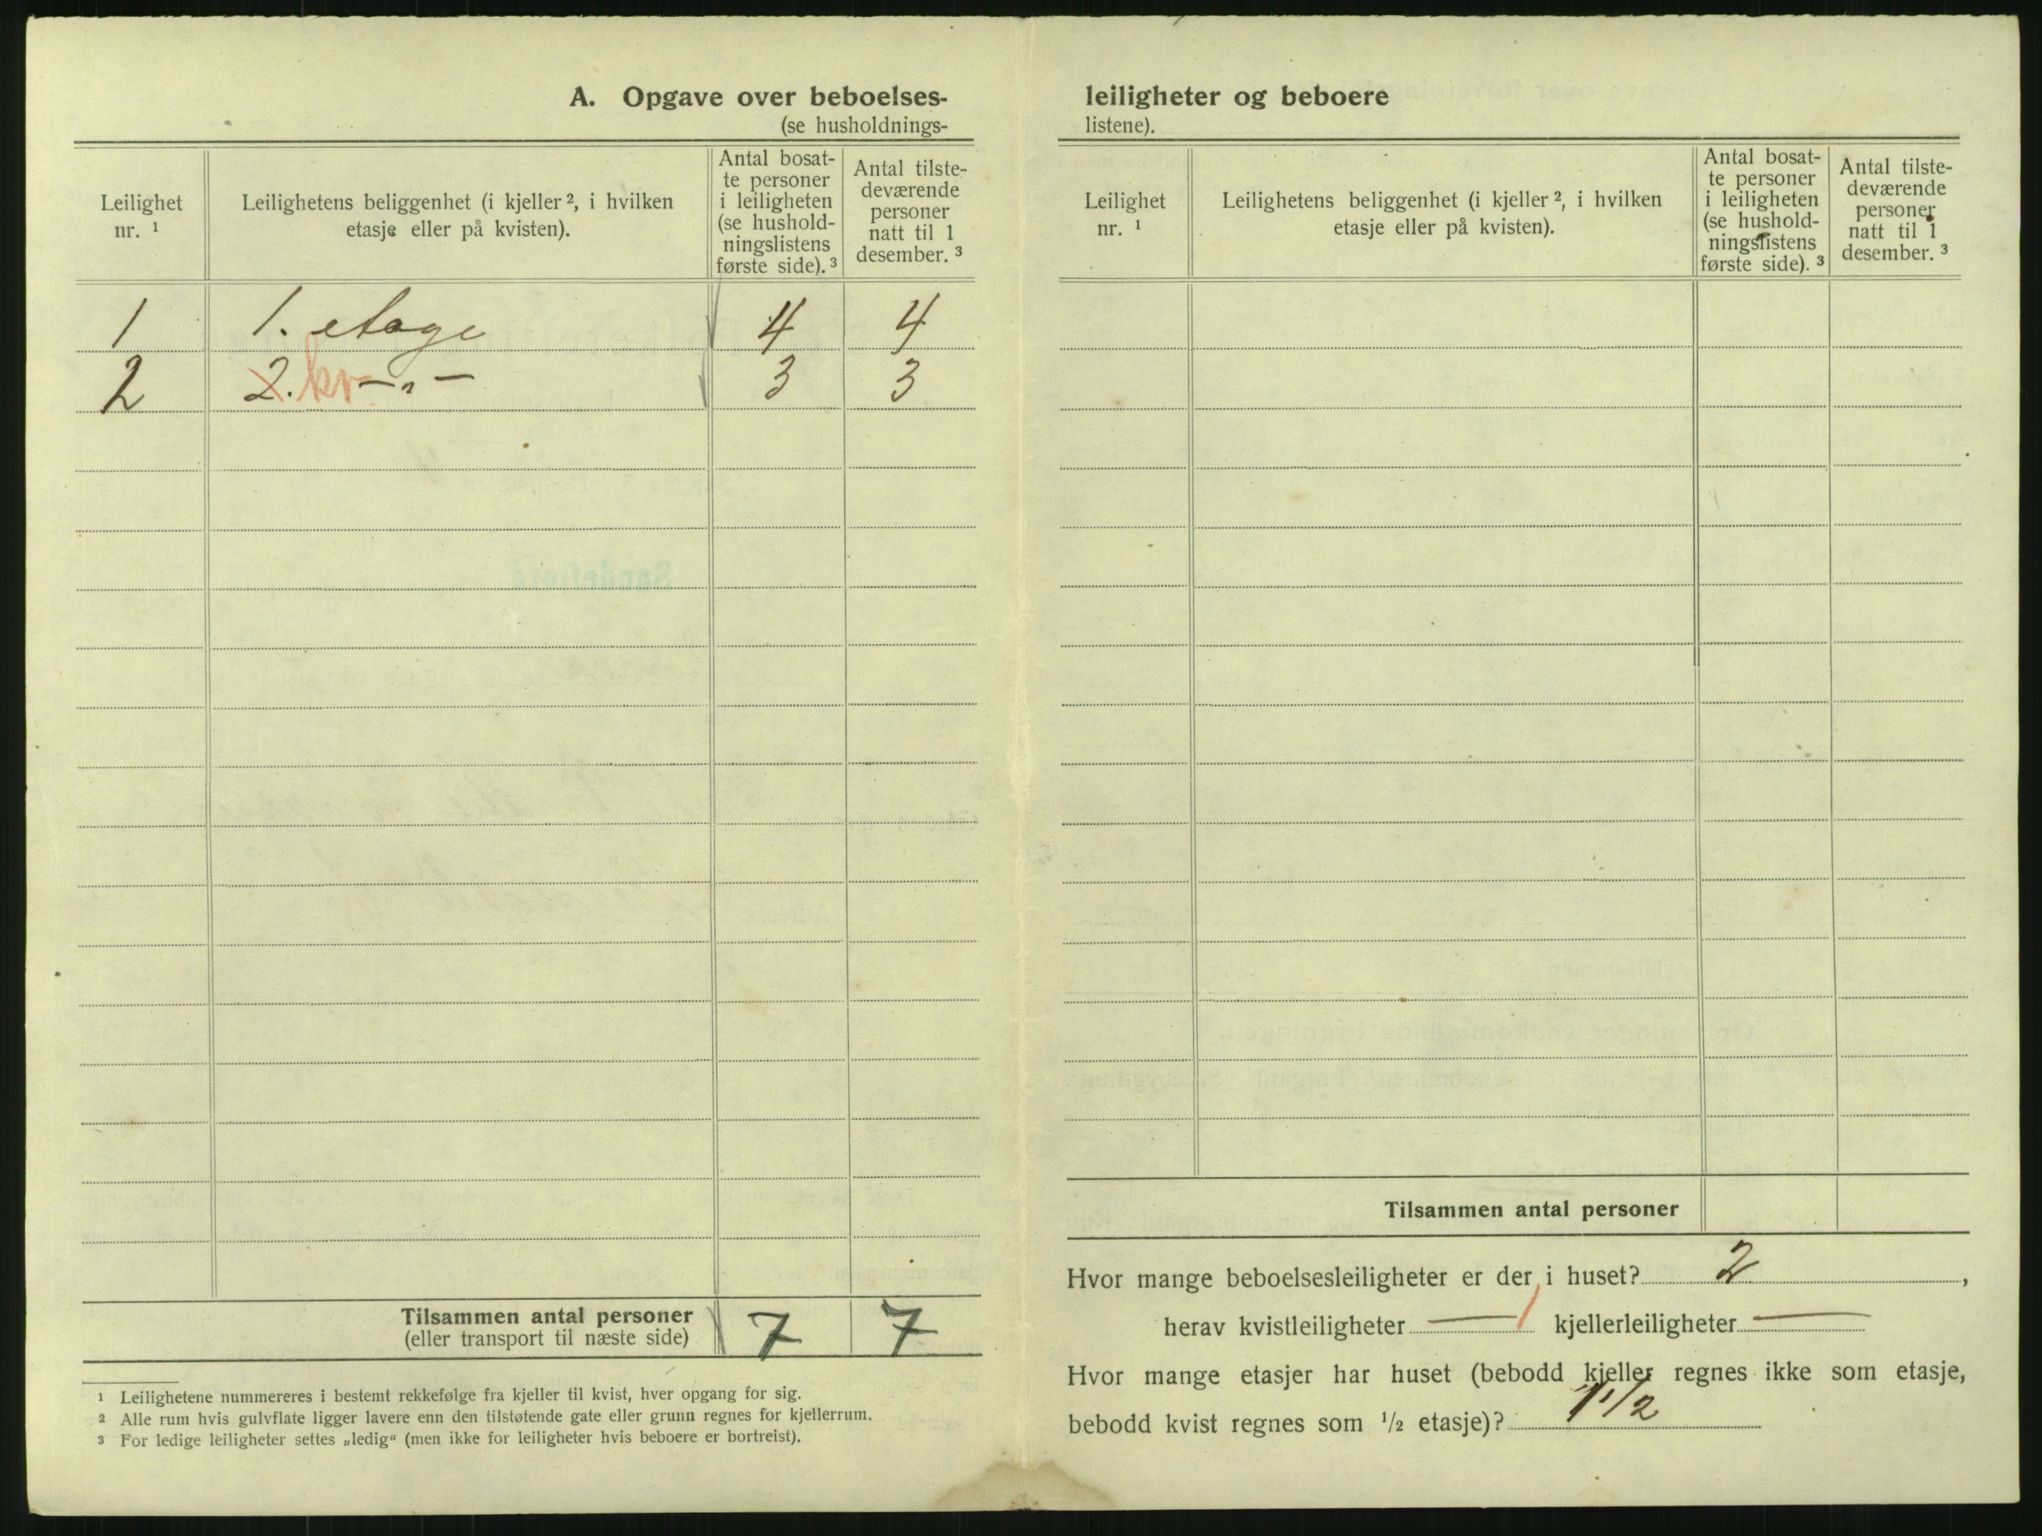 A. Opgave over beboelses-
(se husholdnings-
Leilighet nr. ¹
Leilighetens beliggenhet (i kjeller ², i hvilken etasje eller på kvisten).
Antal bosat-
te personer
i leiligheten
(se hushold-
ningslistens
første side). ³
Antal tilste-
deværende
personer
natt til 1
desember. ³
1 1. etage 4 4
2 2. kv - „ - 3 3
Tilsammen antal personer 7 7
(eller transport til næste side)
¹ Leilighetene nummereres i bestemt rekkefølge fra kjeller til kvist, hver opgang for sig.
² Alle rum hvis gulvflate ligger lavere enn den tilstøtende gate eller grunn regnes for kjellerrum.
³ For ledige leiligheter settes „ledig“ (men ikke for leiligheter hvis beboere er bortreist).
leiligheter og beboere
listene).
Leilighet nr. ¹
Leilighetens beliggenhet (i kjeller ², i hvilken etasje eller på kvisten).
Antal bosat-
te personer
i leiligheten
(se hushold-
ningslistens
første side). ³
Antal tilste-
deværende
personer
natt til 1
desember. ³
Tilsammen antal personer
Hvor mange beboelsesleiligheter er der i huset? 2 ,
herav kvistleiligheter — 1 kjellerleiligheter —
Hvor mange etasjer har huset (bebodd kjeller regnes ikke som etasje,
bebodd kvist regnes som ½ etasje)? 1 1/2